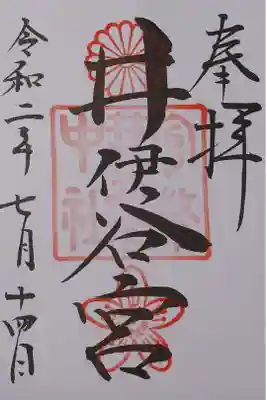 奉拝
井伊谷宮
令和二年七月十四日